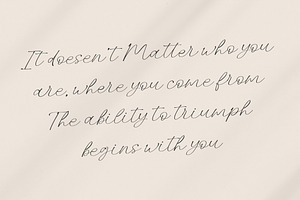 It doesen't Matter who you
are. where you come from
The ability to triumph
begins with you